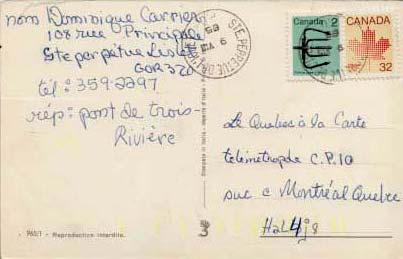 nom Dominique Carrier
108 rue Principale
Ste perpétue Lislet
G0R 3Z0
tél: 359-2297
rép: pont de trois-
Rivière
CANADA
32
Canada 2
STE-PERPETUE
Le Quebec à la Carte
télémetropole C.P. 10
suc c Montréal Quebec
H2L4j8
Reproduction interdite.
3